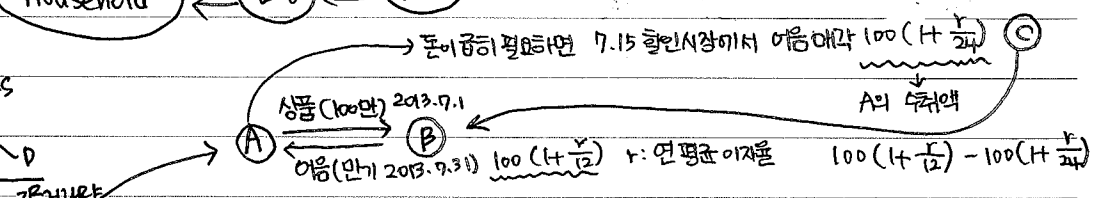 Household
→ 돈이 급히 필요하면 7.15 할인시장에서 어음매각 100(1+r/24) Ⓒ
S
A의 수취액
상품(100만) 2013.7.1
Ⓐ Ⓑ
D
어음(만기 2013.7.31) 100(1+r/12) r: 연평균이자율 100(1+r/12)-100(1+r/24)